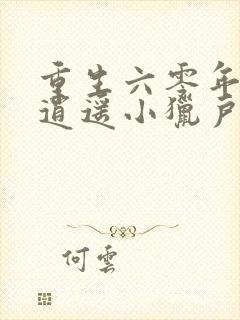 重生六零年
逍遥小獵戶
何雲